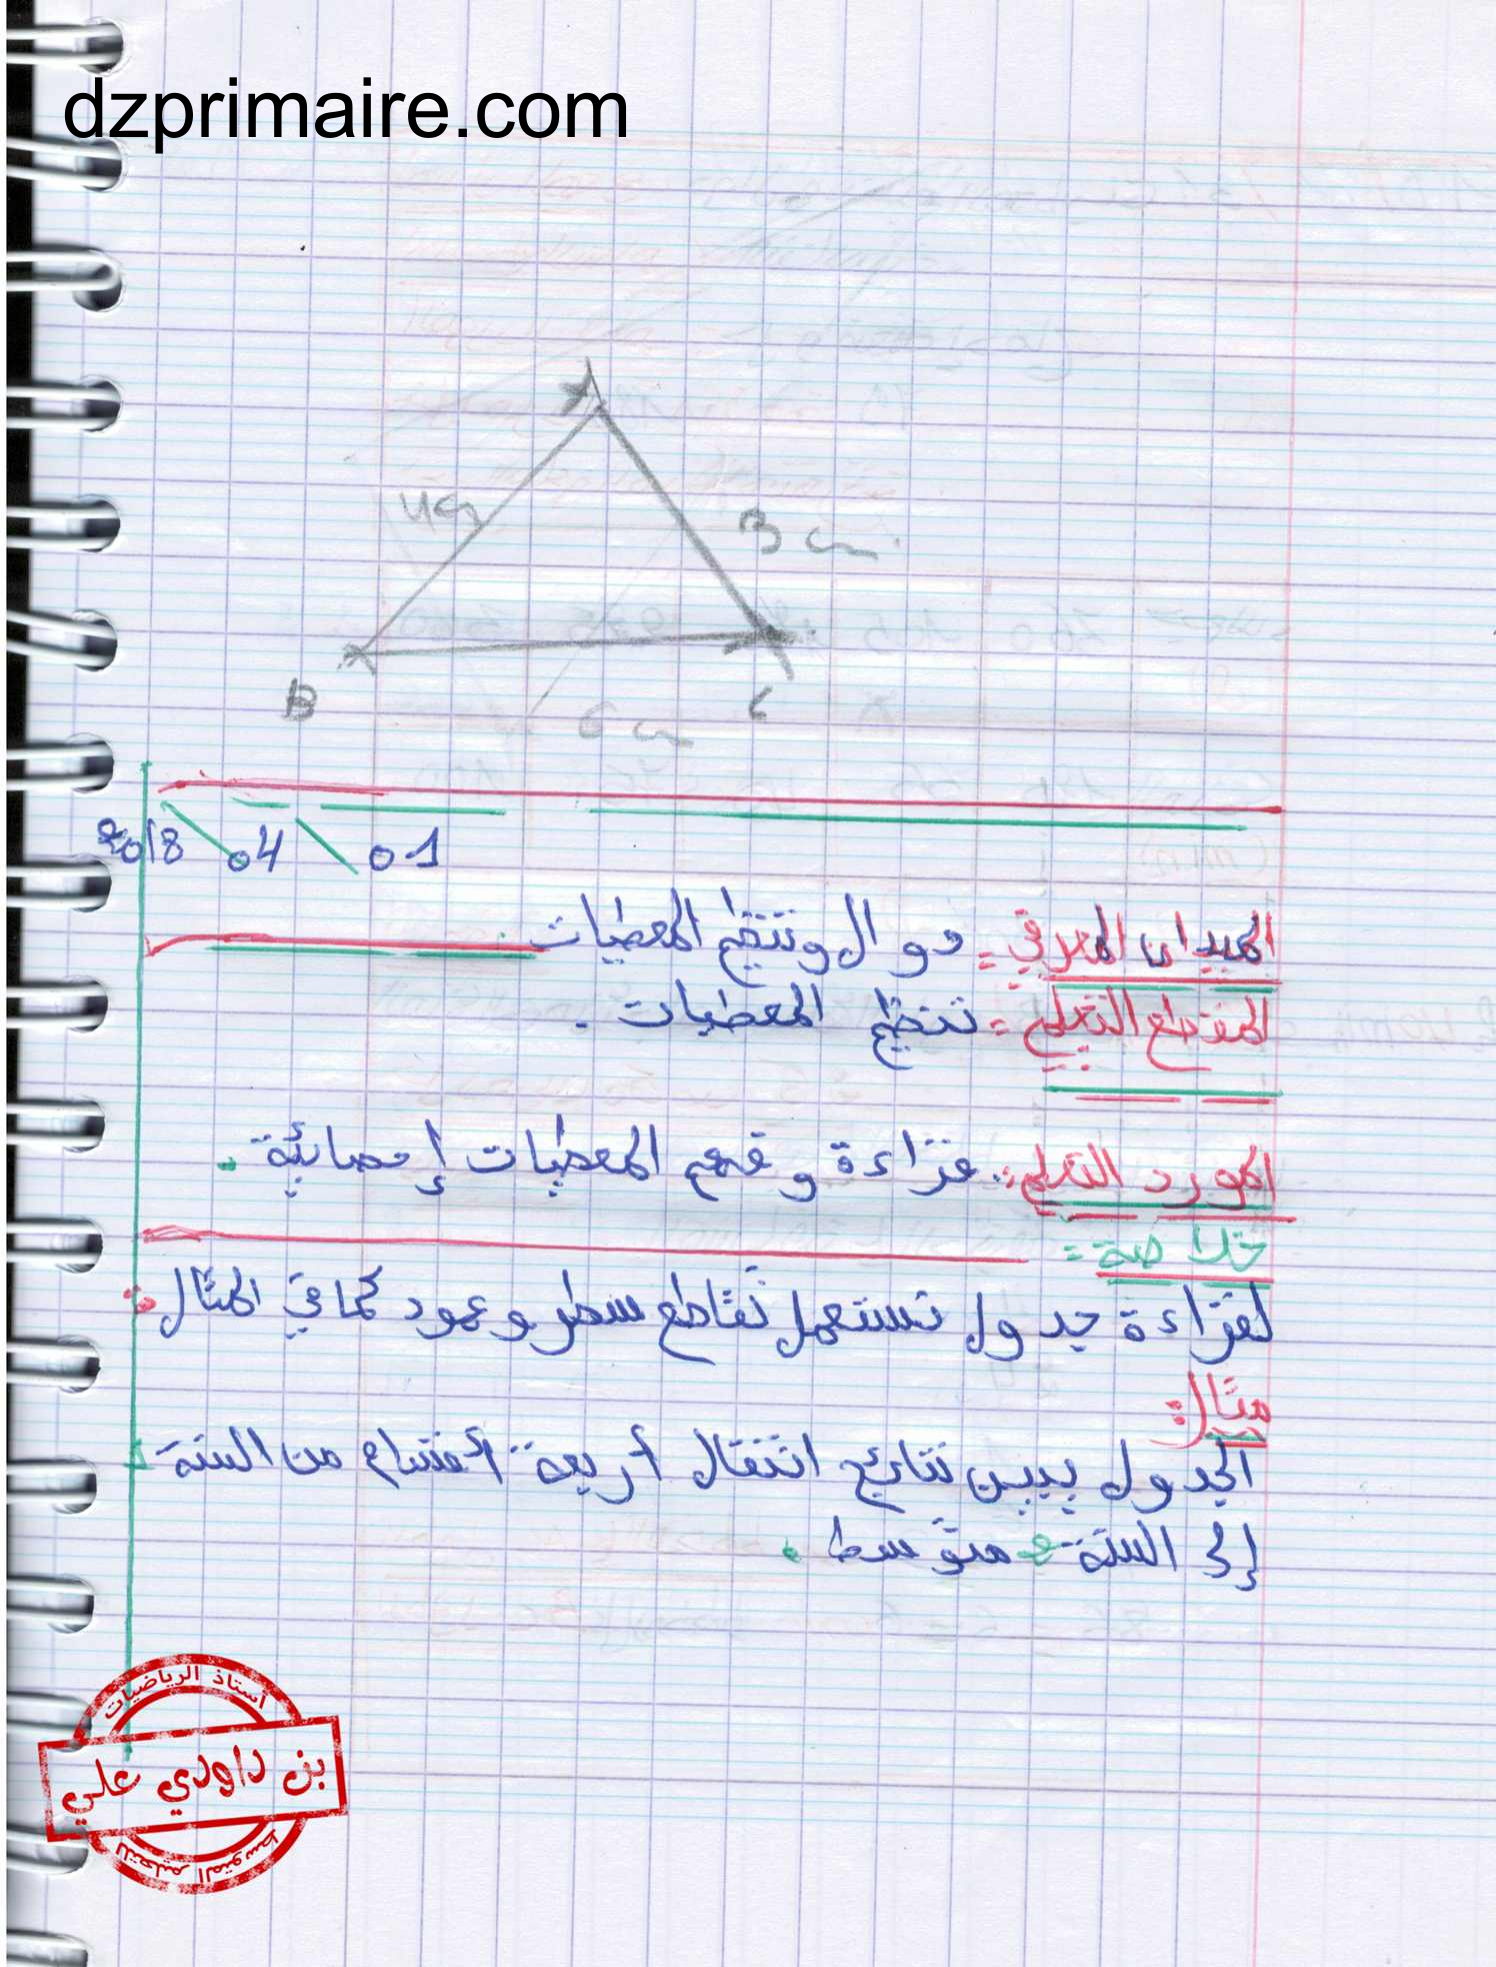 dzprimaire.com
A
4cm
3 cm
B
C
6 cm
2018 \ 04 \ 01
الميدان المعرفي = دوال وتنظيم المعطيات
المقطع التعلمي = تنظيم المعطيات .
المورد التعلمي : قراءة وفهم المعطيات إحصائية .
خلاصة =
لقراءة جدول نستعمل تقاطع سطر وعمود كما في المثال :
مثال :
الجدول يبين نتائج انتقال أربعة أقسام من السنة 1
إلى السنة 2 متوسط .
أستاذ الرياضيات
بن داودي علي
للتعليم المتوسط